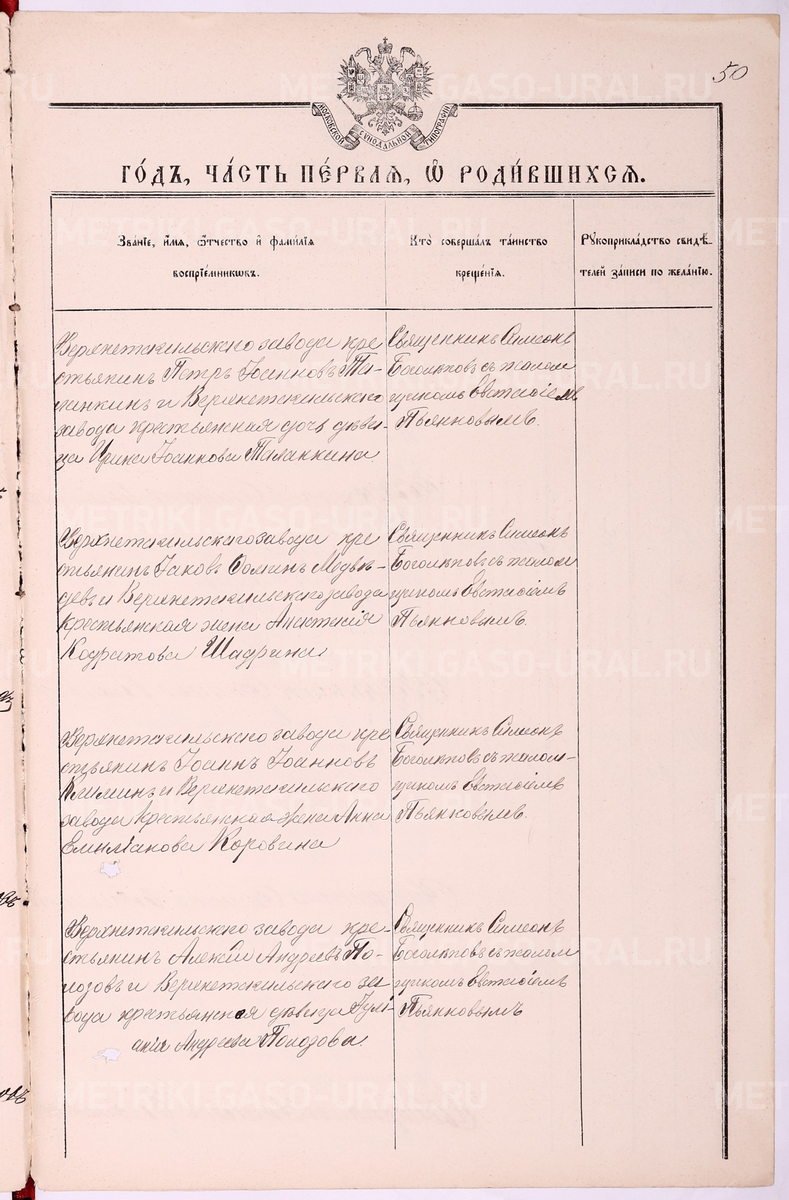 50
МОСКОВСКОЙ СѴНОДАЛЬНОЙ ТИПОГРАФІИ
ГО́ДЪ, ЧА́СТЬ ПЕ́РВАЯ, Ѽ РОДИ́ВШИХСЯ.
Зва́нїе, и҆́мѧ, ѻ҆́тчество и҆ фами́лїѧ
воспрїе́мникѡвъ.
Кто̀ соверша́лъ та́инство
креще́нїѧ.
Рꙋкоприкла́дство свидѣ́-
телей за́писи по жела́нїю.
Верхнетагильского завода кре
стьянинъ Петръ Іоанновъ Та-
ланкинъ и Верхнетагильскаго
завода крестьянская дочь дѣви-
ца Ирина Іоаннова Таланкина
Священникъ Симеонъ
Боголѣповъ съ псалом
щикомъ Евстафіемъ
Пьянковымъ.
Верхнетагильскаго завода кре
стьянинъ Іаковъ Ѳоминъ Медвѣ-
девъ и Верхнетагильскаго завода
крестьянская жена Анастасія
Кодратова Шадрина
Священникъ Симеонъ
Боголѣповъ съ псалом
щикомъ Евстафіемъ
Пьянковымъ.
Верхнетагильского завода кре
стьянинъ Іоаннъ Іоанновъ
Климинъ и Верхнетагильского
завода крестьянская жена Анна
Емиліанова Коровина
Священникъ Симеонъ
Боголѣповъ съ псалом-
щикомъ Евстафіемъ
Пьянковымъ.
Верхнетагильского завода кре-
стьянинъ Алексій Андреевъ По-
лозовъ и Верхнетагильского за-
вода крестьянская дѣвица Іулі-
анія Андреева Полозова.
Священникъ Симеонъ
Боголѣповъ съ псалом
щикомъ Евстафіемъ
Пьянковымъ
METRIKI.GASO-URAL.RU